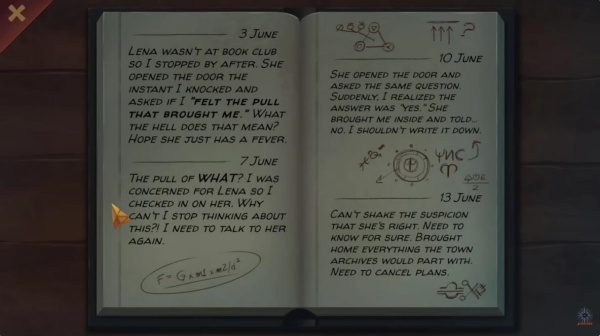 3 June
Lena wasn't at book club
so I stopped by after. She
opened the door the
instant I knocked and
asked if I "felt the pull
that brought me." What
the hell does that mean?
Hope she just has a fever.
7 June
The pull of WHAT? I was
concerned for Lena so I
checked in on her. Why
can't I stop thinking about
this?! I need to talk to her
again.
F = G x m1 x m2/d²
?
10 June
She opened the door and
asked the same question.
Suddenly, I realized the
answer was "yes." She
brought me inside and told...
no. I shouldn't write it down.
13 June
Can't shake the suspicion
that she's right. Need to
know for sure. Brought
home everything the town
archives would part with.
Need to cancel plans.